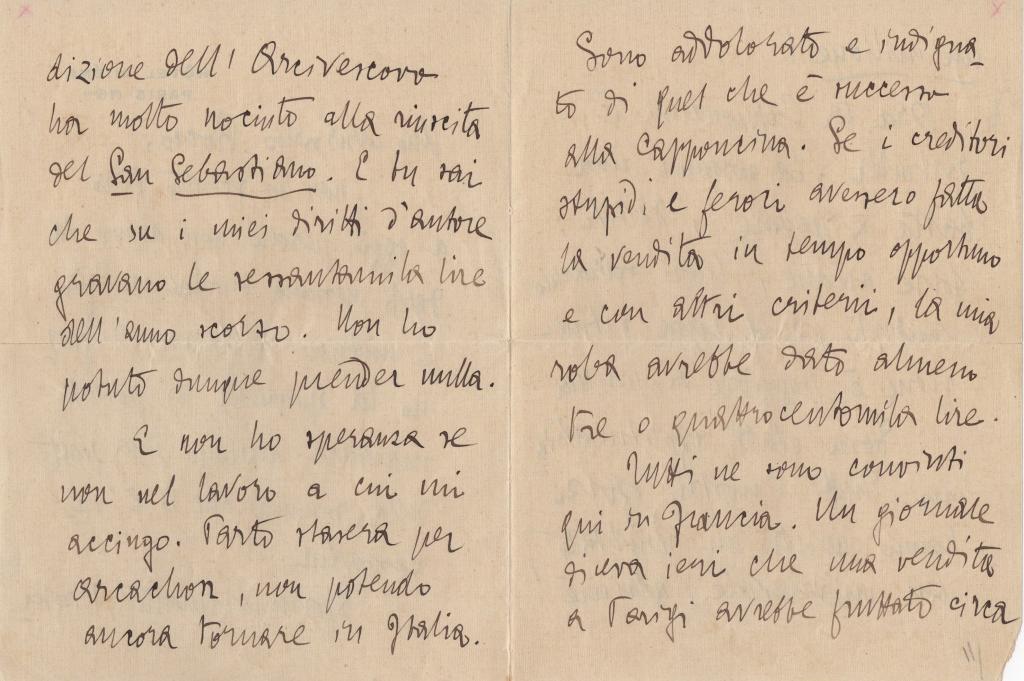 dizione dell'Arcivescovo
ha molto nociuto alla riuscita
del San Sebastiano. E tu sai
che su i miei diritti d'autore
gravano le sessantamila lire
dell'anno scorso. Non ho
potuto dunque prender nulla.
E non ho speranza se
non nel lavoro a cui mi
accingo. Parto stasera per
Arcachon, non potendo
ancora tornare in Italia.
Sono addolorato e indigna-
to di quel che è successo
alla Capponcina. Se i creditori
stupidi e feroci avessero fatta
la vendita in tempo opportuno
e con altri criterii, la mia
roba avrebbe dato almeno
tre o quattrocentomila lire.
Tutti ne sono convinti
qui in Francia. Un giornale
diceva ieri che una vendita
a Parigi avrebbe fruttato circa